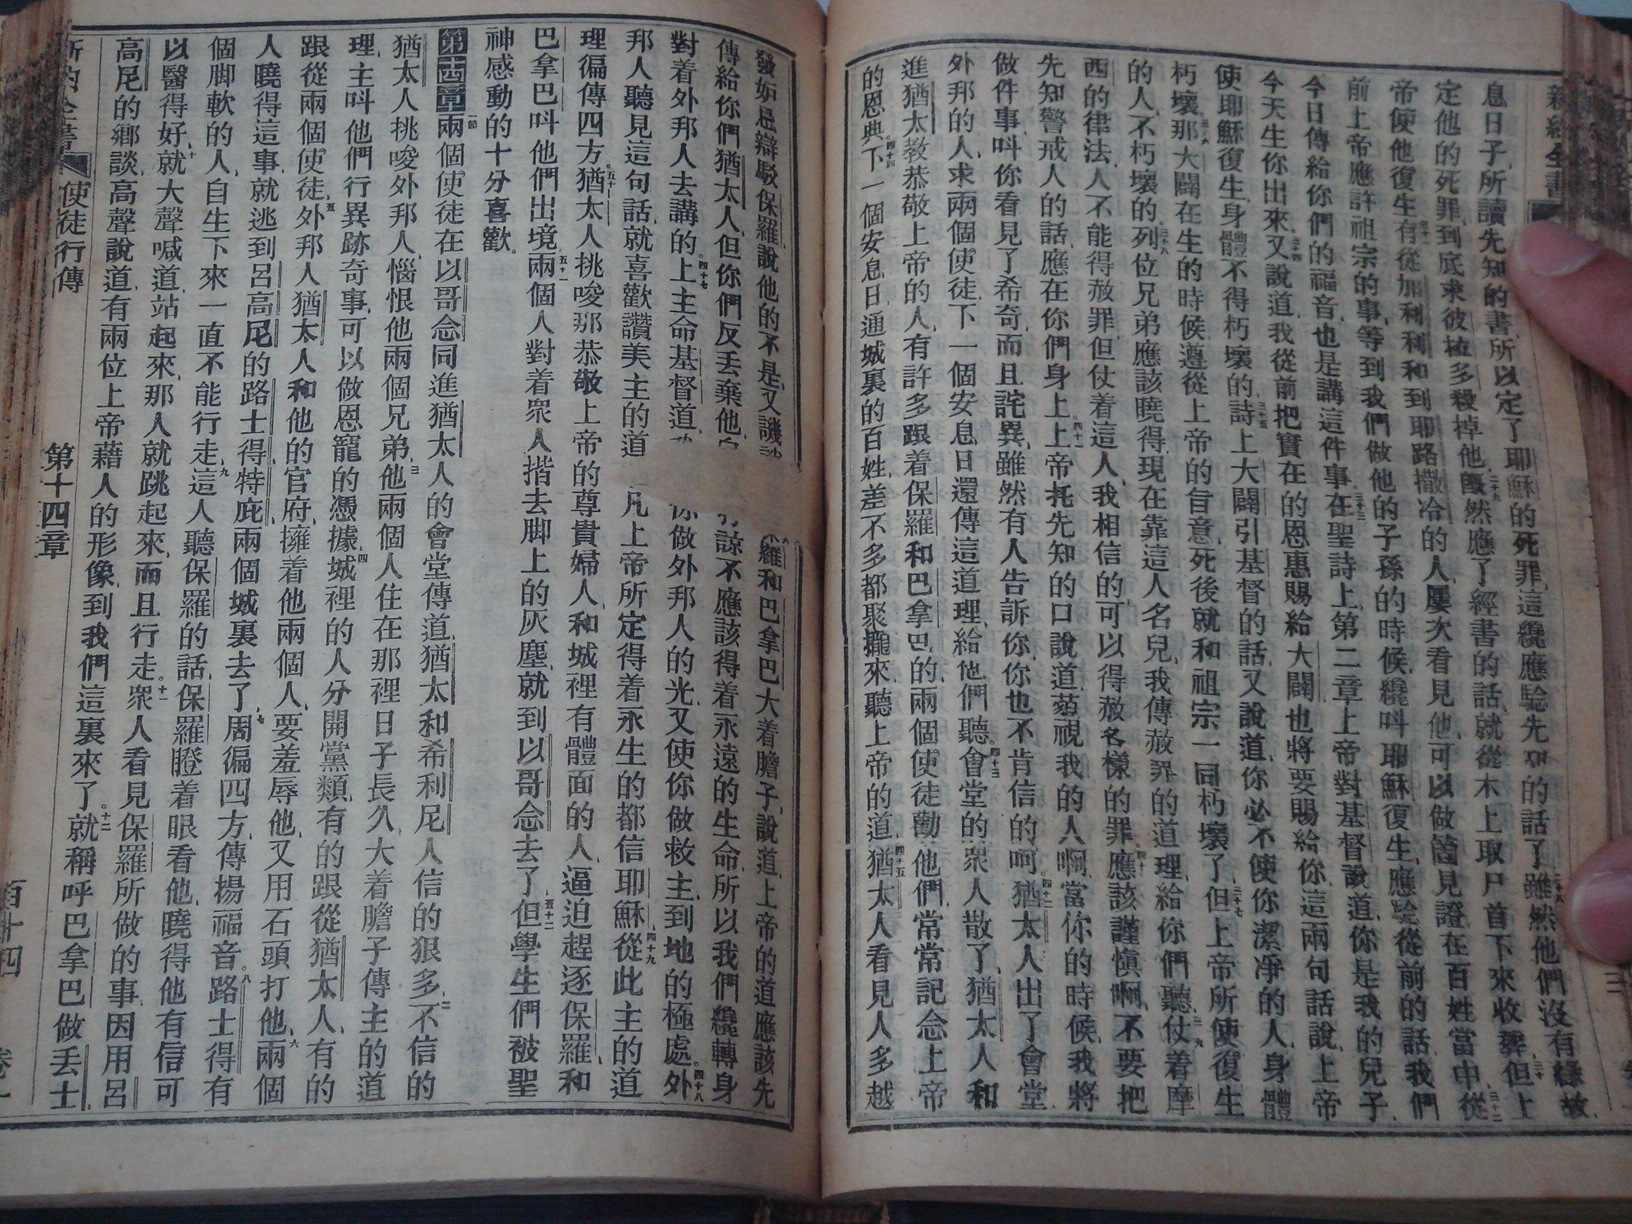 新約全書
息日子所讀先知的書所以定了耶穌的死罪這纔應驗先知的話了二十八雖然他們沒有緣故
定他的死罪到底求彼拉多殺掉他二十九旣然應了經書的話就從木上取尸首下來收葬三十但上
帝使他復生三十一有從加利利和到耶路撒冷的人屢次看見他可以做箇見證在百姓當中三十二從
前上帝應許祖宗的事等到我們做他的子孫的時候纔呌耶穌復生應驗從前的話我們
今日傳給你們的福音也是講這件事三十三在聖詩上第二章上帝對基督說道你是我的兒子
今天生你出來三十四又說道我從前把實在的恩惠賜給大闢也將要賜給你這兩句話說上帝
使耶穌復生身體不得朽壞的三十五詩上大闢引基督的話又說道你必不使你潔淨的人身體
朽壞三十六那大闢在生的時候遵從上帝的旨意死後就和祖宗一同朽壞了三十七但上帝所使復生
的人不朽壞的三十八列位兄弟應該曉得現在靠這人名兒我傳赦罪的道理給你們聽三十九仗着摩
西的律法人不能得赦罪但仗着這人我相信的可以得赦各樣的罪四十應該謹愼啊不要把
先知警戒人的話應在你們身上四十一上帝托先知的口說道藐視我的人啊當你的時候我將
做件事呌你看見了希奇而且詫異雖然有人告訴你你也不肯信的呵四十二猶太人出了會堂
外邦的人求兩個使徒下一個安息日還傳這道理給他們聽四十三會堂的衆人散了猶太人和
進猶太教恭敬上帝的人有許多跟着保羅和巴拿巴的兩個使徒勸他們常常記念上帝
的恩典四十四下一個安息日通城裏的百姓差不多都聚攏來聽上帝的道四十五猶太人看見人多越
發妬忌辯駁保羅說他的不是又譏 羅和巴拿巴大着膽子說道上帝的道應該先
傳給你們猶太人但你們反丟棄他 諒不應該得着永遠的生命所以我們纔轉身
對着外邦人去講的四十七上主命基督道 你做外邦人的光又使你做救主到地的極處四十八外
邦人聽見這句話就喜歡讚美主的道 凡上帝所定得着永生的都信耶穌四十九從此主的道
理徧傳四方五十猶太人挑唆那恭敬上帝的尊貴婦人和城裡有體面的人逼迫趕逐保羅和
巴拿巴呌他們出境五十一兩個人對着衆人揩去脚上的灰塵就到以哥念去了五十二但學生們被聖
神感動的十分喜歡
第十四章一節兩個使徒在以哥念同進猶太人的會堂傳道猶太和希利尼人信的狠多二不信的
猶太人挑唆外邦人惱恨他兩個兄弟三他兩個人住在那裡日子長久大着膽子傳主的道
理主呌他們行異跡奇事可以做恩寵的憑據四城裡的人分開黨類有的跟從猶太人有的
跟從兩個使徒五外邦人猶太人和他的官府擁着他兩個人要羞辱他又用石頭打他六兩個
人曉得這事就逃到呂高尼的路士得特庇兩個城裏去了七周徧四方傳揚福音八路士得有
個脚軟的人自生下來一直不能行走九這人聽保羅的話保羅瞪着眼看他曉得他有信可
以醫得好十就大聲喊道站起來那人就跳起來而且行走十一衆人看見保羅所做的事因用呂
高尼的鄉談高聲說道有兩位上帝藉人的形像到我們這裏來了十二就稱呼巴拿巴做丟士
新約全書 使徒行傳 第十四章 百十四